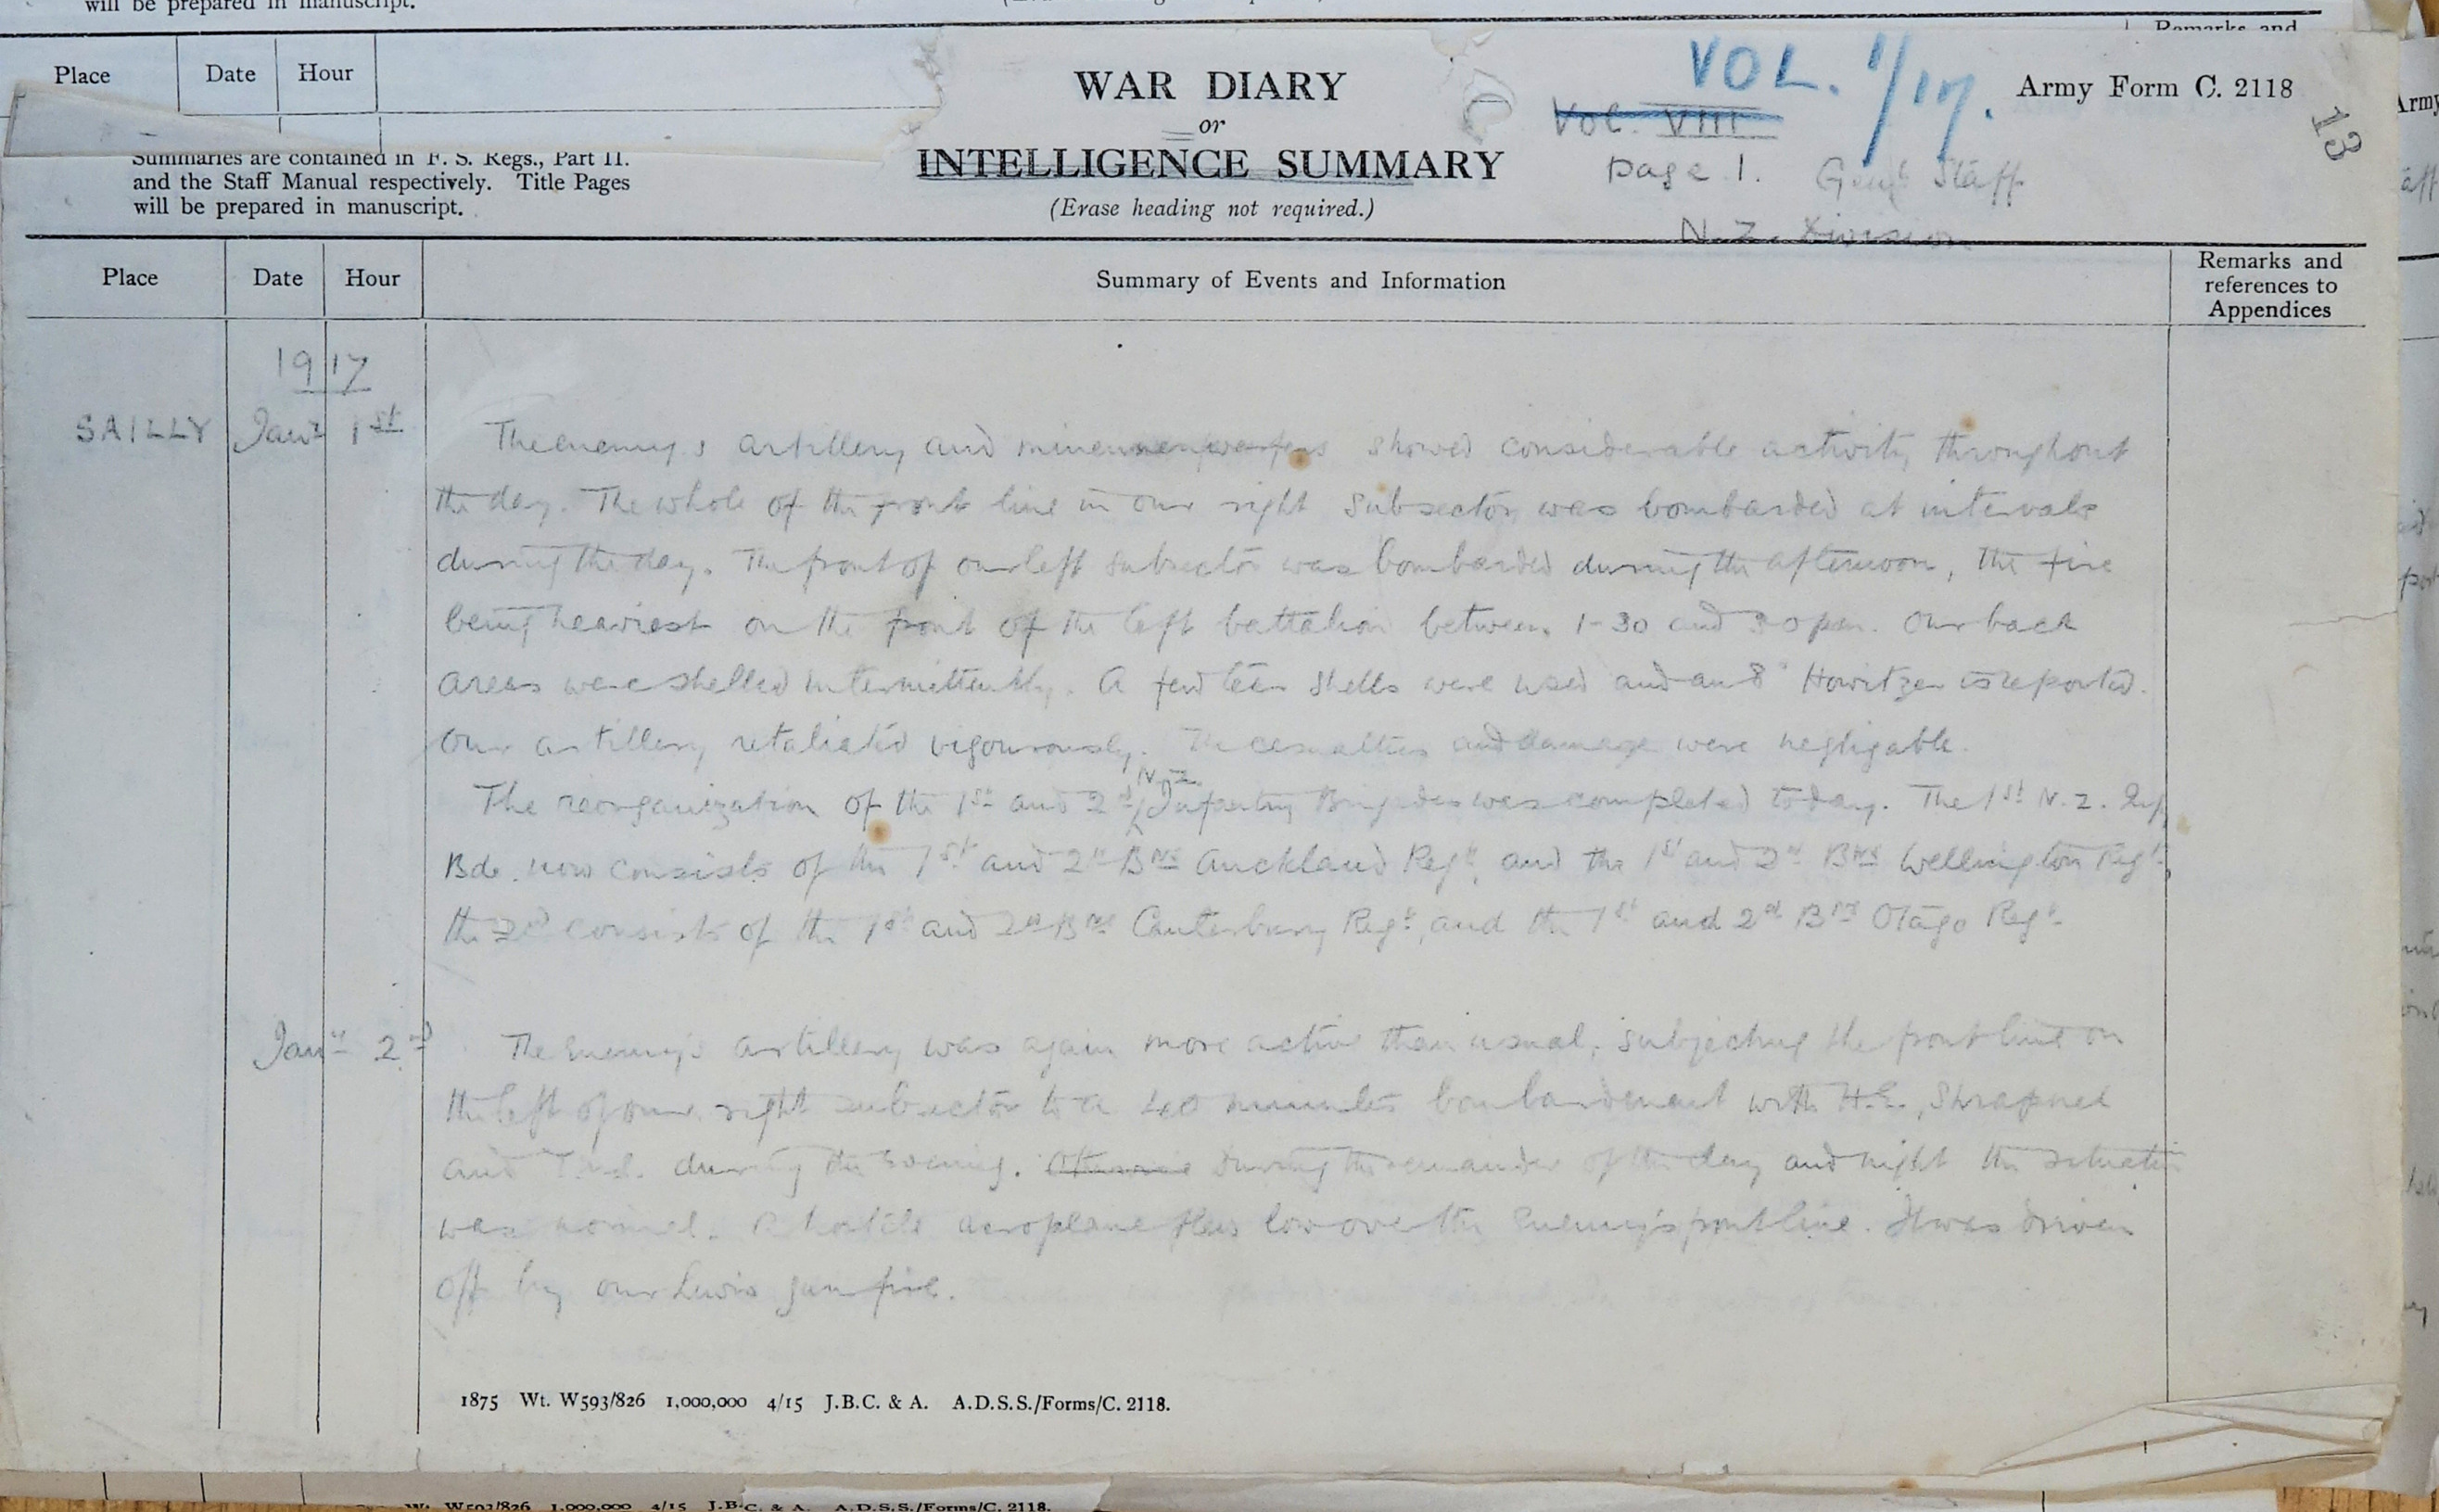 will be prepared in manuscript.
Remarks and
Place Date Hour
WAR DIARY
or
INTELLIGENCE SUMMARY
(Erase heading not required.)
VOL. 1/17.
Vol. VIII
page 1. Genl Staff
N.Z. Division
Army Form C. 2118
13
Summaries are contained in F. S. Regs., Part II.
and the Staff Manual respectively. Title Pages
will be prepared in manuscript.
Place Date Hour Summary of Events and Information Remarks and references to Appendices
1917
SAILLY Jany 1st The enemy's artillery and minenwerfers showed considerable activity throughout
the day. The whole of the front line in our right subsector was bombarded at intervals
during the day. The front of our left subsector was bombarded during the afternoon, the fire
being heaviest on the front of the left battalion between 1-30 and 3 0 pm. Our back
areas were shelled intermittently. A few tear shells were used and an 8" Howitzer is reported.
Our artillery retaliated vigourously. The casualties and damage were negligable.
The reorganization of the 1st and 2nd N.Z. Infantry Brigades was completed today. The 1st N.Z. Inf
Bde. now consists of the 1st and 2nd Bns Auckland Regt, and the 1st and 2nd Bns Wellington Regt,
the 2nd consists of the 1st and 2nd Bns Canterbury Regt, and the 1st and 2nd Bns Otago Regt.
Jany 2nd The Enemy's artillery was again more active than usual, subjecting the front line on
the left of our right subsector to a 40 minutes bombardment with H.E., Shrapnel
and T.M.S. during the evening. Otherwise During the remainder of the day and night the situation
was normal. A hostile aeroplane flew low over the Enemy's front line. It was driven
off by our Lewis gun fire.
1875 Wt. W593/826 1,000,000 4/15 J.B.C. & A. A.D.S.S./Forms/C. 2118.
Wt. W593/826 1,000,000 4/15 J.B.C. & A. A.D.S.S./Forms/C. 2118.